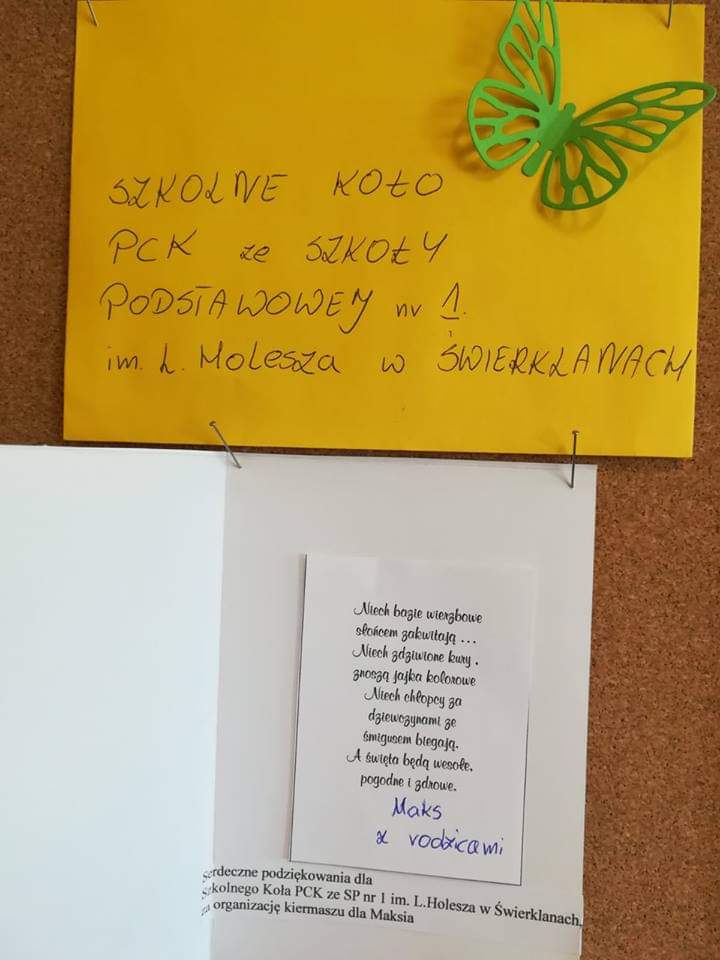 SZKOLNE KOŁO
PCK ze SZKOŁY
PODSTAWOWEJ nr 1.
im. L. Holesza w ŚWIERKLANACH
Niech bazie wierzbowe
słońcem zakwitają ...
Niech zdziwione kury ,
znoszą jajka kolorowe
Niech chłopcy za
dziewczynami ze
śmigusem biegają.
A święta będą wesołe,
pogodne i zdrowe.
Maks
z rodzicami
Serdeczne podziękowania dla
Szkolnego Koła PCK ze SP nr 1 im. L.Holesza w Świerklanach,
za organizację kiermaszu dla Maksia